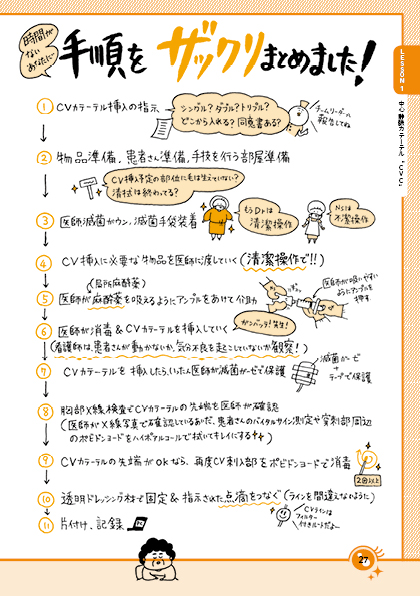 時間が
ない
あなたに…
手順をザックリまとめました!
LESSON 1
中心静脈カテーテル "CVC"
① CVカテーテル挿入の指示
シングル?ダブル?トリプル?
どこから入れる?同意書ある?
チームリーダーへ
報告してね
② 物品準備、患者さん準備、手技を行う部屋準備
CV挿入予定の部位に毛は生えていない?
清拭は終わってる?
③ 医師滅菌ガウン、滅菌手袋装着
もうDrは
清潔操作
Nsは
不潔操作
④ CV挿入に必要な物品を医師に渡していく(清潔操作で!!)
(局所麻酔薬)
⑤ 医師が麻酔薬を吸えるようにアンプルをあけて介助
医師が吸いやすい
ようにアンプルを
押す
⑥ 医師が消毒&CVカテーテルを挿入していく
ガンバッテ!先生!
(看護師は、患者さんが動かないか、気分不良を起こしていないか観察!)
⑦ CVカテーテルを挿入したら、いったん医師が滅菌ガーゼで保護
滅菌ガーゼ
+
テープで保護
⑧ 胸部X線検査でCVカテーテルの先端を医師が確認
(医師がX線写真で確認しているあいだ、患者さんのバイタルサイン測定や穿刺部周辺
のポビドンヨードをハイポアルコールで拭いてキレイにする)
⑨ CVカテーテルの先端がokなら、再度CV刺入部をポビドンヨードで消毒
2回以上
⑩ 透明ドレッシング材で固定&指示された点滴をつなぐ(ラインを間違えないように)
CVラインは
フィルター
付きルートだよ〜
⑪ 片付け、記録
27